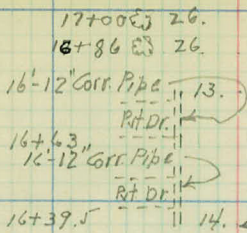 17+00 26.
16+86 26.
16'-12" Corr. Pipe 13.
Pvt. Dr.
16+63
16'-12" Corr. Pipe
Pvt. Dr.
16+39.5 14.